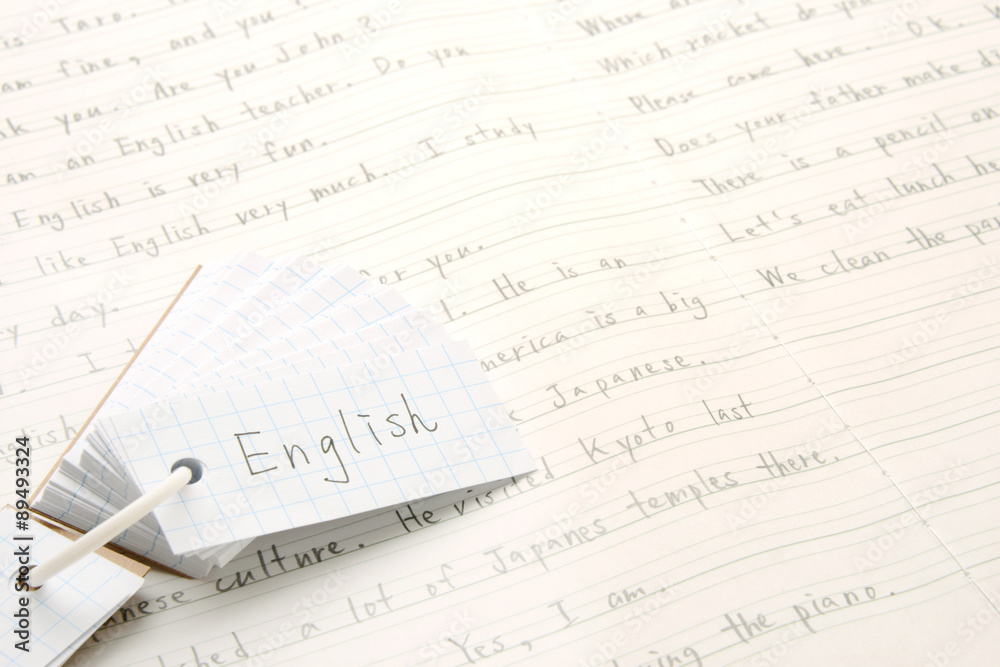 is Taro.
am fine, and you
you. Are you John?
am an English teacher. Do you
English is very fun.
like English very much. I study
day.
you.
I
He is an
is a big
Japanese.
He visited Kyoto last
culture.
a lot of Japanes temples there.
Yes, I am.
the piano.
Where
Which racket do you
Please come here. Ok.
Does your father make
There is a pencil on
Let's eat lunch
We clean the
English
Adobe Stock | #89493324